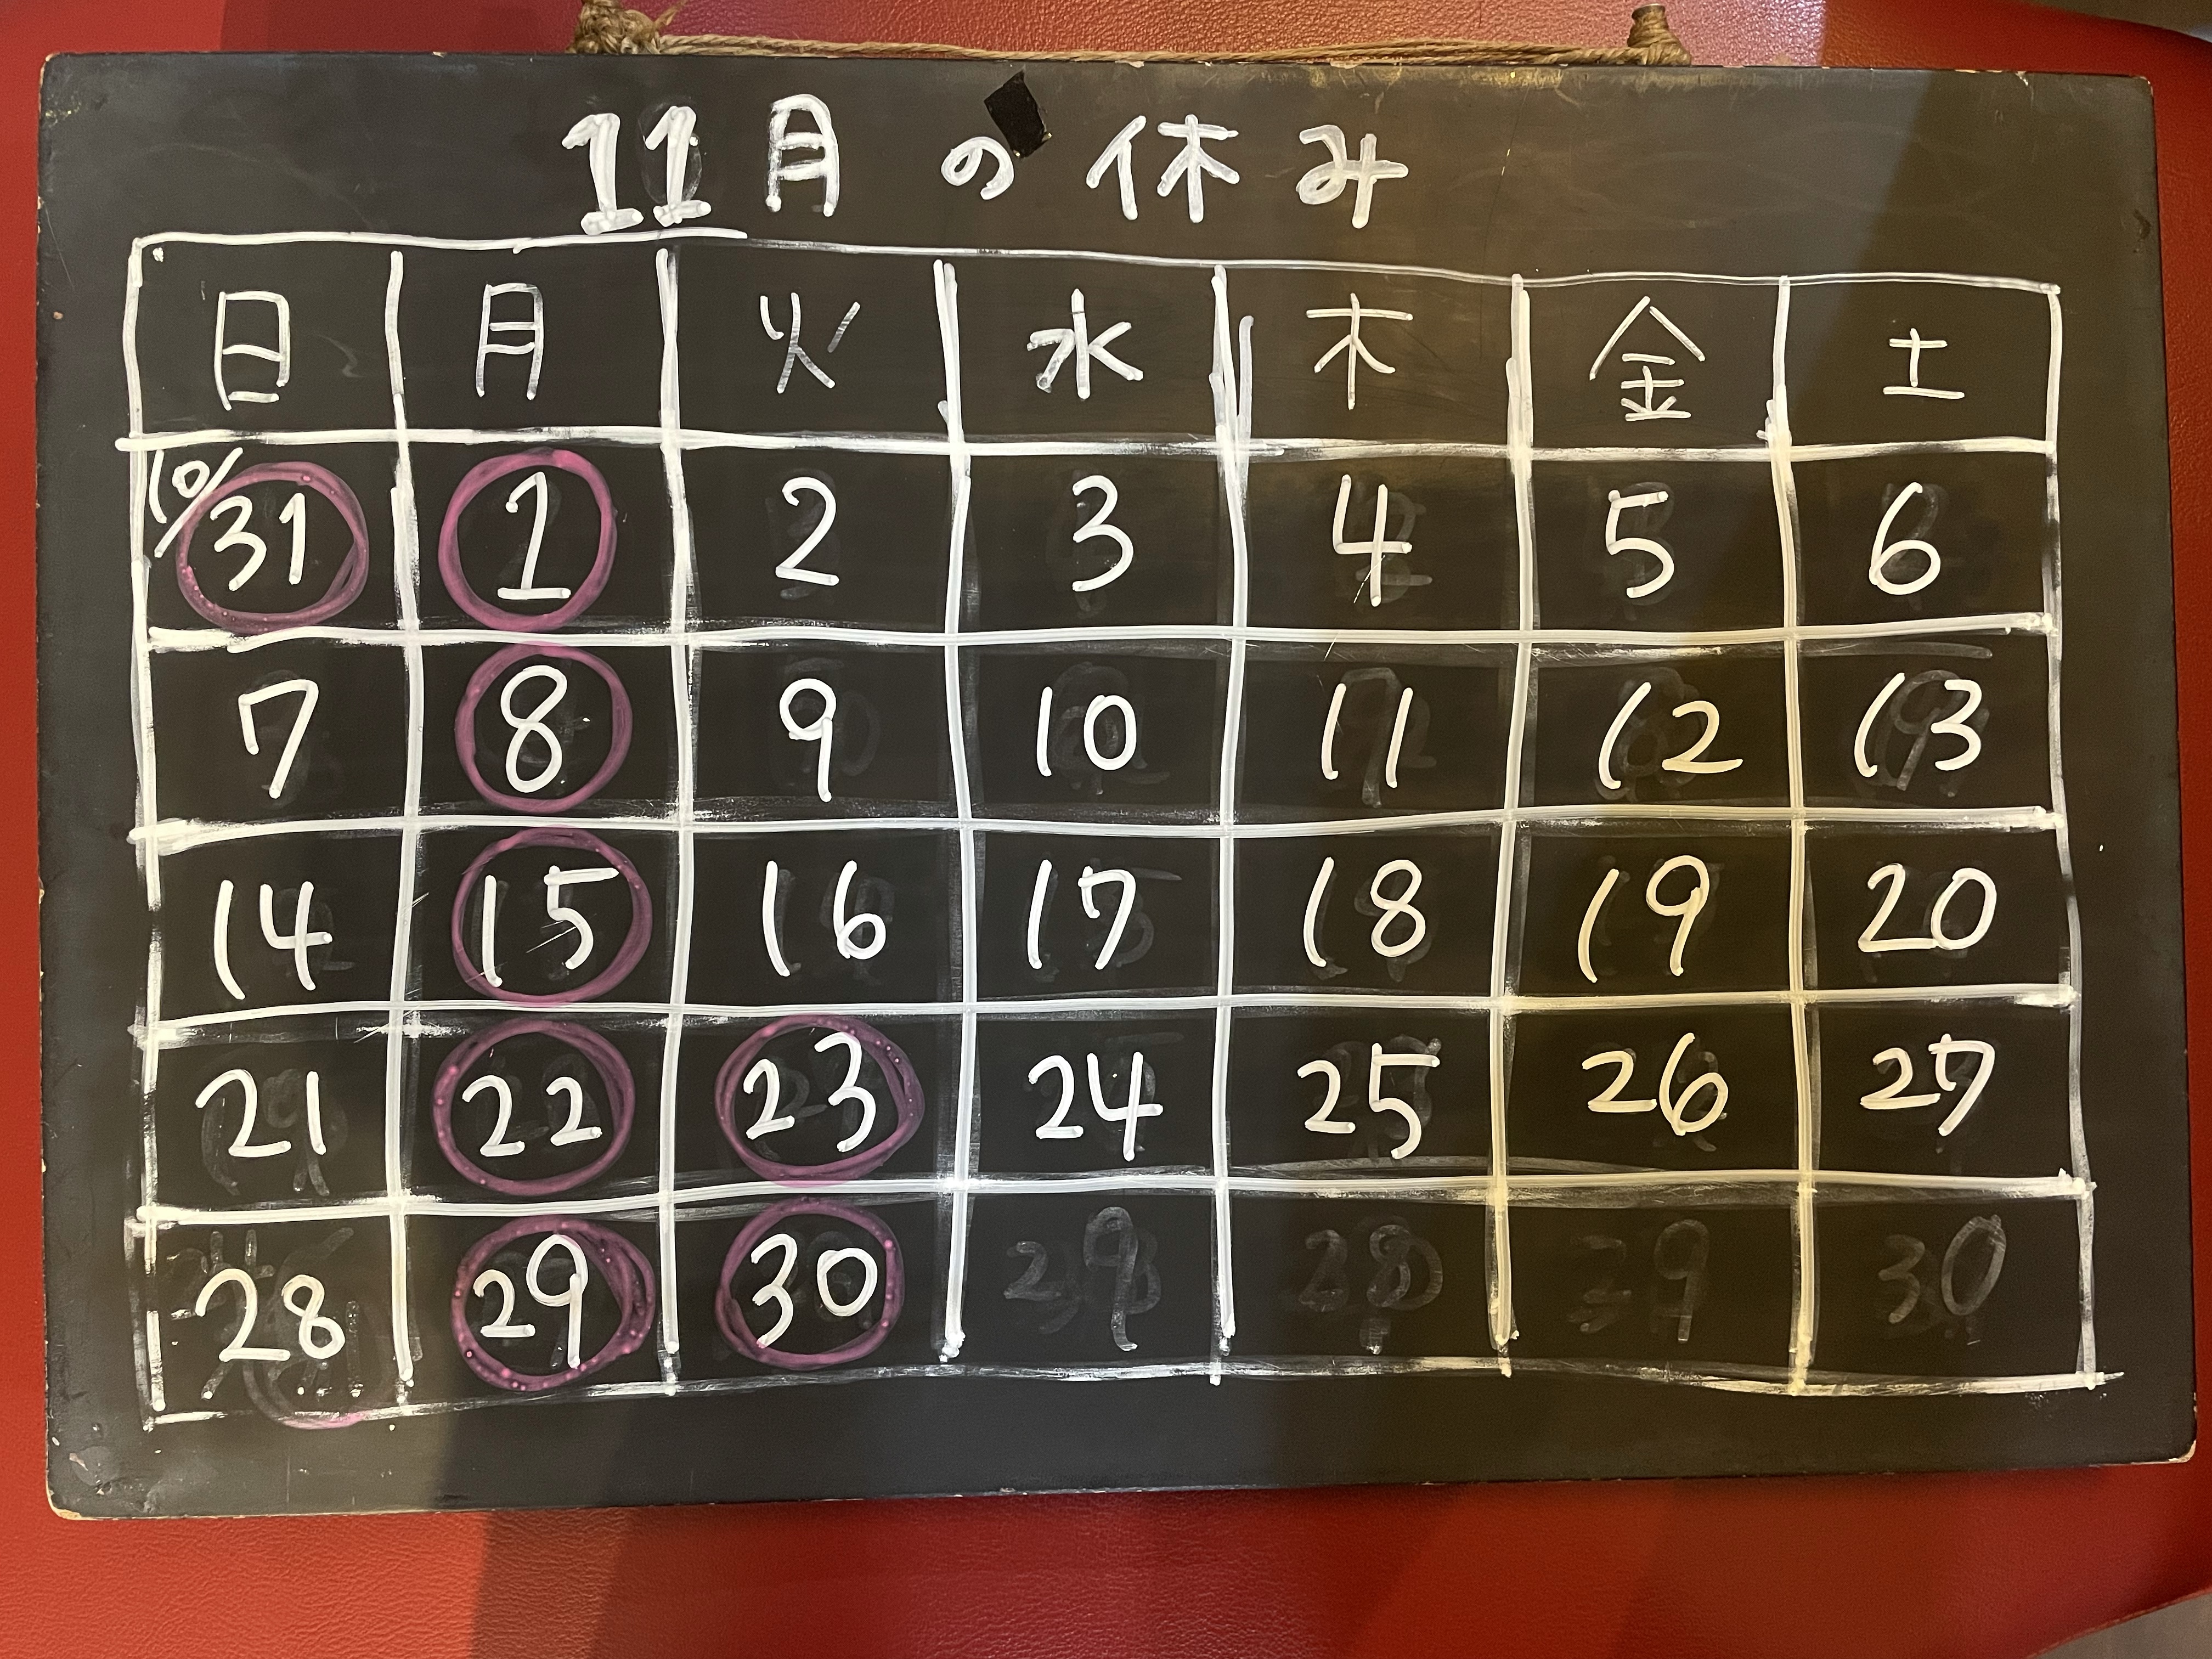 11月の休み
日 月 火 水 木 金 土
10/31 1 2 3 4 5 6
7 8 9 10 11 12 13
14 15 16 17 18 19 20
21 22 23 24 25 26 27
28 29 30